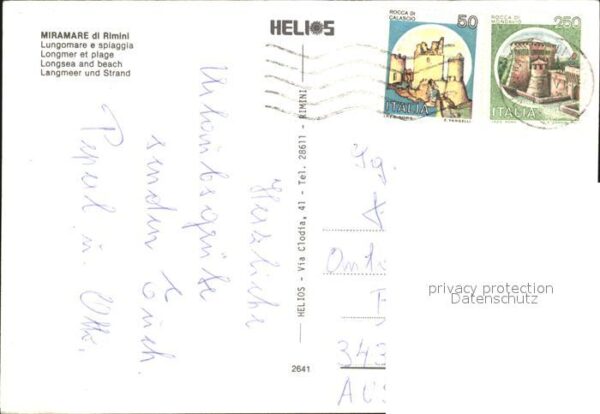 MIRAMARE di Rimini
Lungomare e spiaggia
Longmer et plage
Longsea and beach
Langmeer und Strand
HELIOS
ROCCA DI
CALASCIO
50
ITALIA
ROCCA DI
MONDAVIO
250
ITALIA
Herzliche
Urlaubsgrüße
senden Euch
Pepul u. Otti.
HELIOS - Via Clodia, 41 - Tel. 28611 - RIMINI
2641
343
privacy protection
Datenschutz